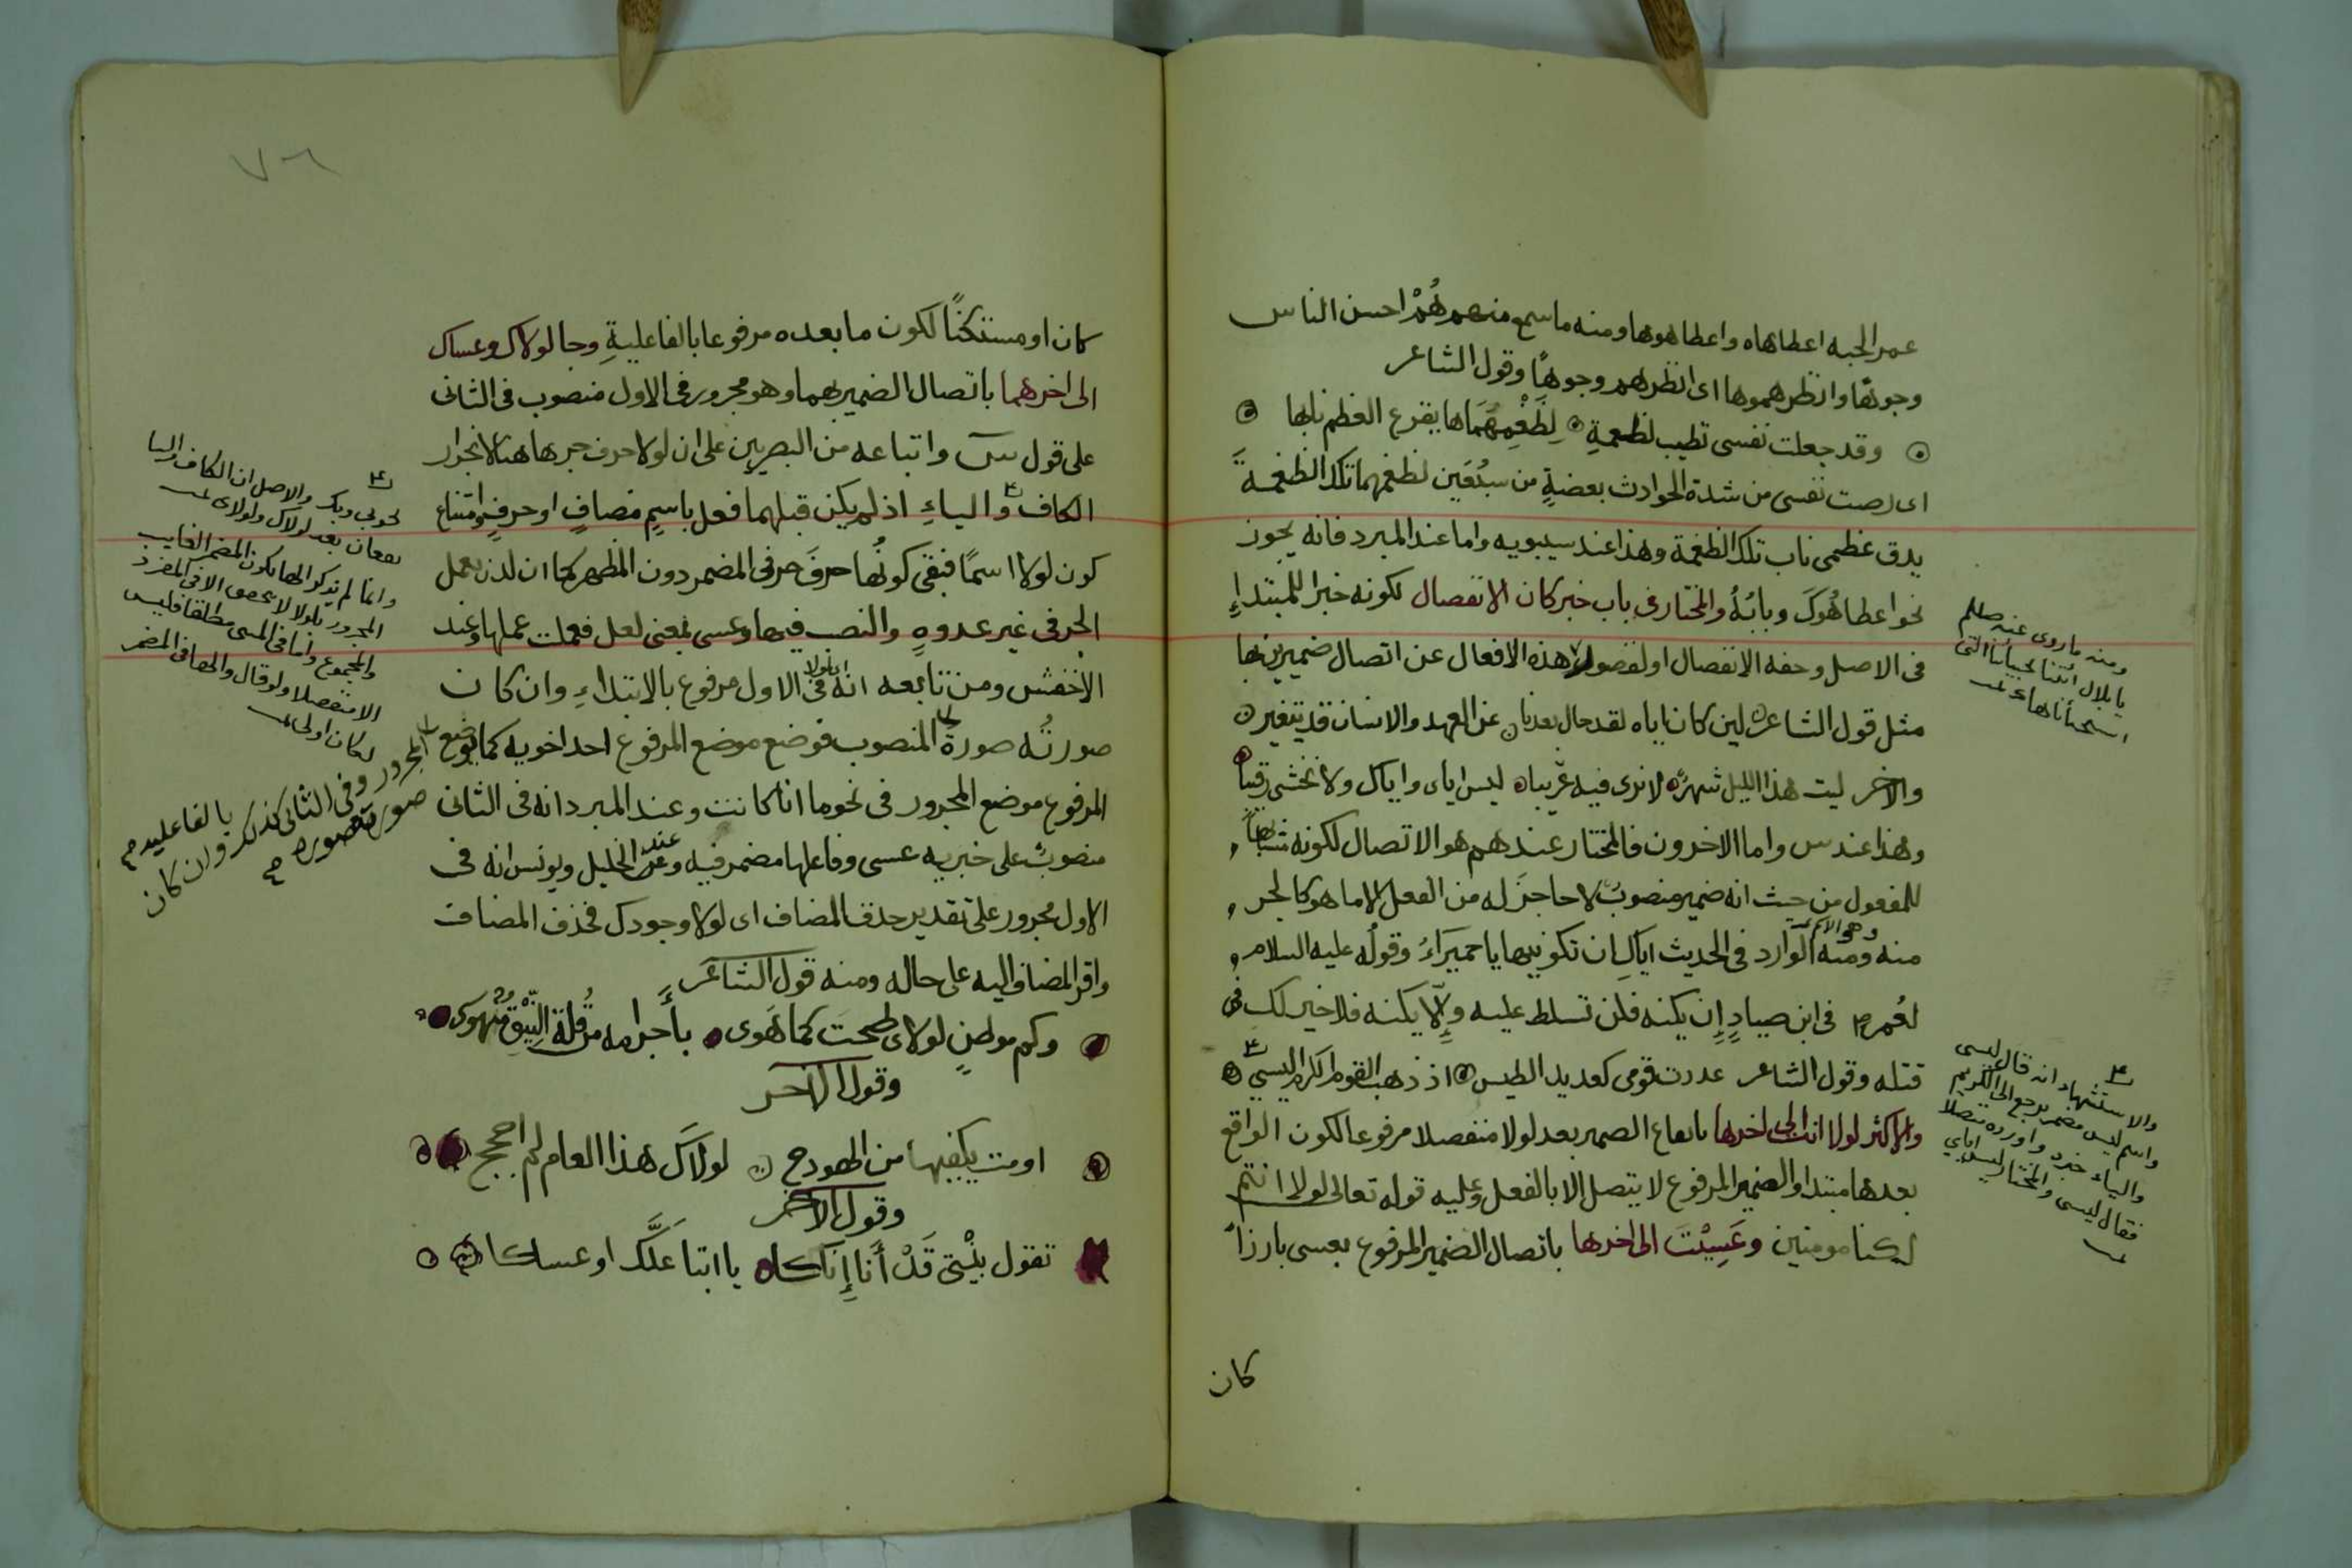 عمر الجبه اعطاهاه واعطاهوها ومنه ما سمع منهم هُمْ احسن الناس
وجوهًا وانظرهموها اى انظرهم وجوهًا وقول الشاعر
وقد جعلت نفسى تطيب لضغمةٍ لِضَغْمِهُمَاها يقرع العظم نابها
اى رضت نفسى من شدة الحوادث بعضةٍ من سبُعَين لضغمهما تلك الضغمةَ
يدق عظمى ناب تلك الضغمة وهذا عند سيبويه واما عند المبرد فانه يجوز
نحو اعطاهُوكَ وبابُهُ والمختار فى باب خبر كان الانفصال لكونه خبرا للمبتداءِ
فى الاصل وحقه الانفصال او لقصور هذه الافعال عن اتصال ضميرين بها
مثل قول الشاعر لين كان اياه لقد حال بعدنا عن العهد والانسان قد يتغير
والاخر ليت هذا الليل شهرٌ لا نرى فيه عريبا ليس اياى واياك ولا نخشى رقيبا
وهذا عند س واما الاخرون فالمختار عندهم هو الاتصال لكونه مشبهاً
للمفعول من حيث انه ضمير منصوبٌ لا حاجزَ له من الفعل الا ما هو كالجر
منه ومنه الوارد فى الحديث اياكِ ان تكونيها يا حميَراءُ وقولُه عليه السلام
وهو الاكثر
لعُمر فى ابن صيادٍ إِن يكنه فلن تسلط عليه وإِلَّا يكنه فلا خير لك فى
قتله وقول الشاعر عددت قومى كعديد الطيس اذ ذهب القوم الكرام ليسى
والاكثر لولا انت الى اخرها بايقاع الضمير بعد لولا منفصلا مرفوعا لكون الواقع
بعدها مبتدا والضمير المرفوع لا يتصل الا بالفعل وعليه قوله تعالى لولا انتم
لكنا مومنين وعَسِيْتَ الى اخرها باتصال الضمير المرفوع بعسى بارزاً
كان
ومنه ما روى عنه صلعم
يا بلال ائتنا
والاستشهاد انه قال ليسى
واسم ليس مضمر يرجع الى الكريم
والياء خبره واورده متصلا
فقال ليسى والمختار ليس اياى
٧٦
كان او مستكنًّا لكون ما بعده مرفوعا بالفاعليةِ وجا لولاك وعساك
الى اخرهما باتصال الضمير بهما وهو مجرور فى الاول منصوب فى الثانى
على قول س واتباعه من البصريين على ان لولا حرف جر هاهنا لانجرار
الكاف والياءِ اذ لم يكن قبلهما فعل باسمٍ مضافٍ او حرفٍ وامتناع
كون لولا اسمًا فبقى كونُها حرفَ جر فى المضمر دون المظهر كما ان لدن يعمل
الجر فى غير غدوةٍ والنصب فيها وعسى بمعنى لعل فعملت عملها وعند
الاخفش ومن تابعه انه فى الاول مرفوع بالابتداءِ وان كان
اى لولا
صورتُه صورةُ المنصوب فوضع موضع المرفوع احد اخويه كما يوضع
المرفوع موضع المجرور فى نحو ما انا كانت وعند المبرد انه فى الثانى
منصوبٌ على خبريه عسى وفاعلها مضمر فيه وعند الخليل ويونس انه فى
الاول مجرور على تقدير حذف المضاف اى لولا وجودك فحذف المضاف
واقر المضاف اليه على حاله ومنه قول الشاعر
وكم موطنٍ لولاى طحتَ كما هَوى بأَجرامه من قُلة النِّيْقِ مُنْهوى
وقول الاخر
اومت بكفيها من الهودج لولاكَ هذا العام لم احجج
وقول الاخر
تقول بِنْتى قَدْ أَنَا إِنَاكا يا ابتا عَلَّكَ او عساكا
نحو بى وبك والاصل ان الكاف والياء
يقعان بعد لولاك ولولاى
وانما لم يذكر الهاء لكون المضمر الغايب
المجرور بلولا لا
والمجموع واما فى المثنى مطلقا فليس
الا منفصلا ولو قال والهاء فى المضمر
لكان اولى
المجرور وفى الثانى كذلك وان كان
بالفاعليه
صورته صورة